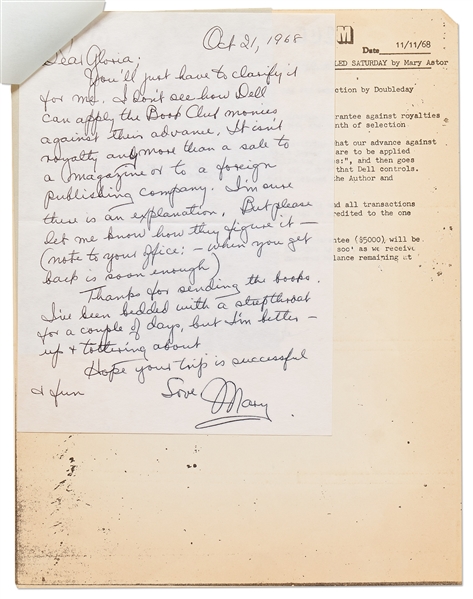 Oct 21, 1968
Dear Gloria;
You'll just have to clarify it
for me. I don't see how Dell
can apply the Book Club monies
against their advance. It isn't
royalty any more than a sale to
a magazine or to a foreign
publishing company. I'm sure
there is an explanation. But please
let me know how they figure it —
(note to your office: — when you get
back is soon enough)
Thanks for sending the books.
I've been bedded with a strepthroat
for a couple of days, but I'm better —
up & tottering about
Hope your trip is successful
& fun
Love
Mary
M
Date 11/11/68
LED SATURDAY by Mary Astor
ction by Doubleday
rantee against royalties
nth of selection
hat our advance against
are to be applied
s:", and then goes
that Dell controls.
the Author and
nd all transactions
redited to the one
tee ($5000) will be
soc' as we receive
lance remaining at